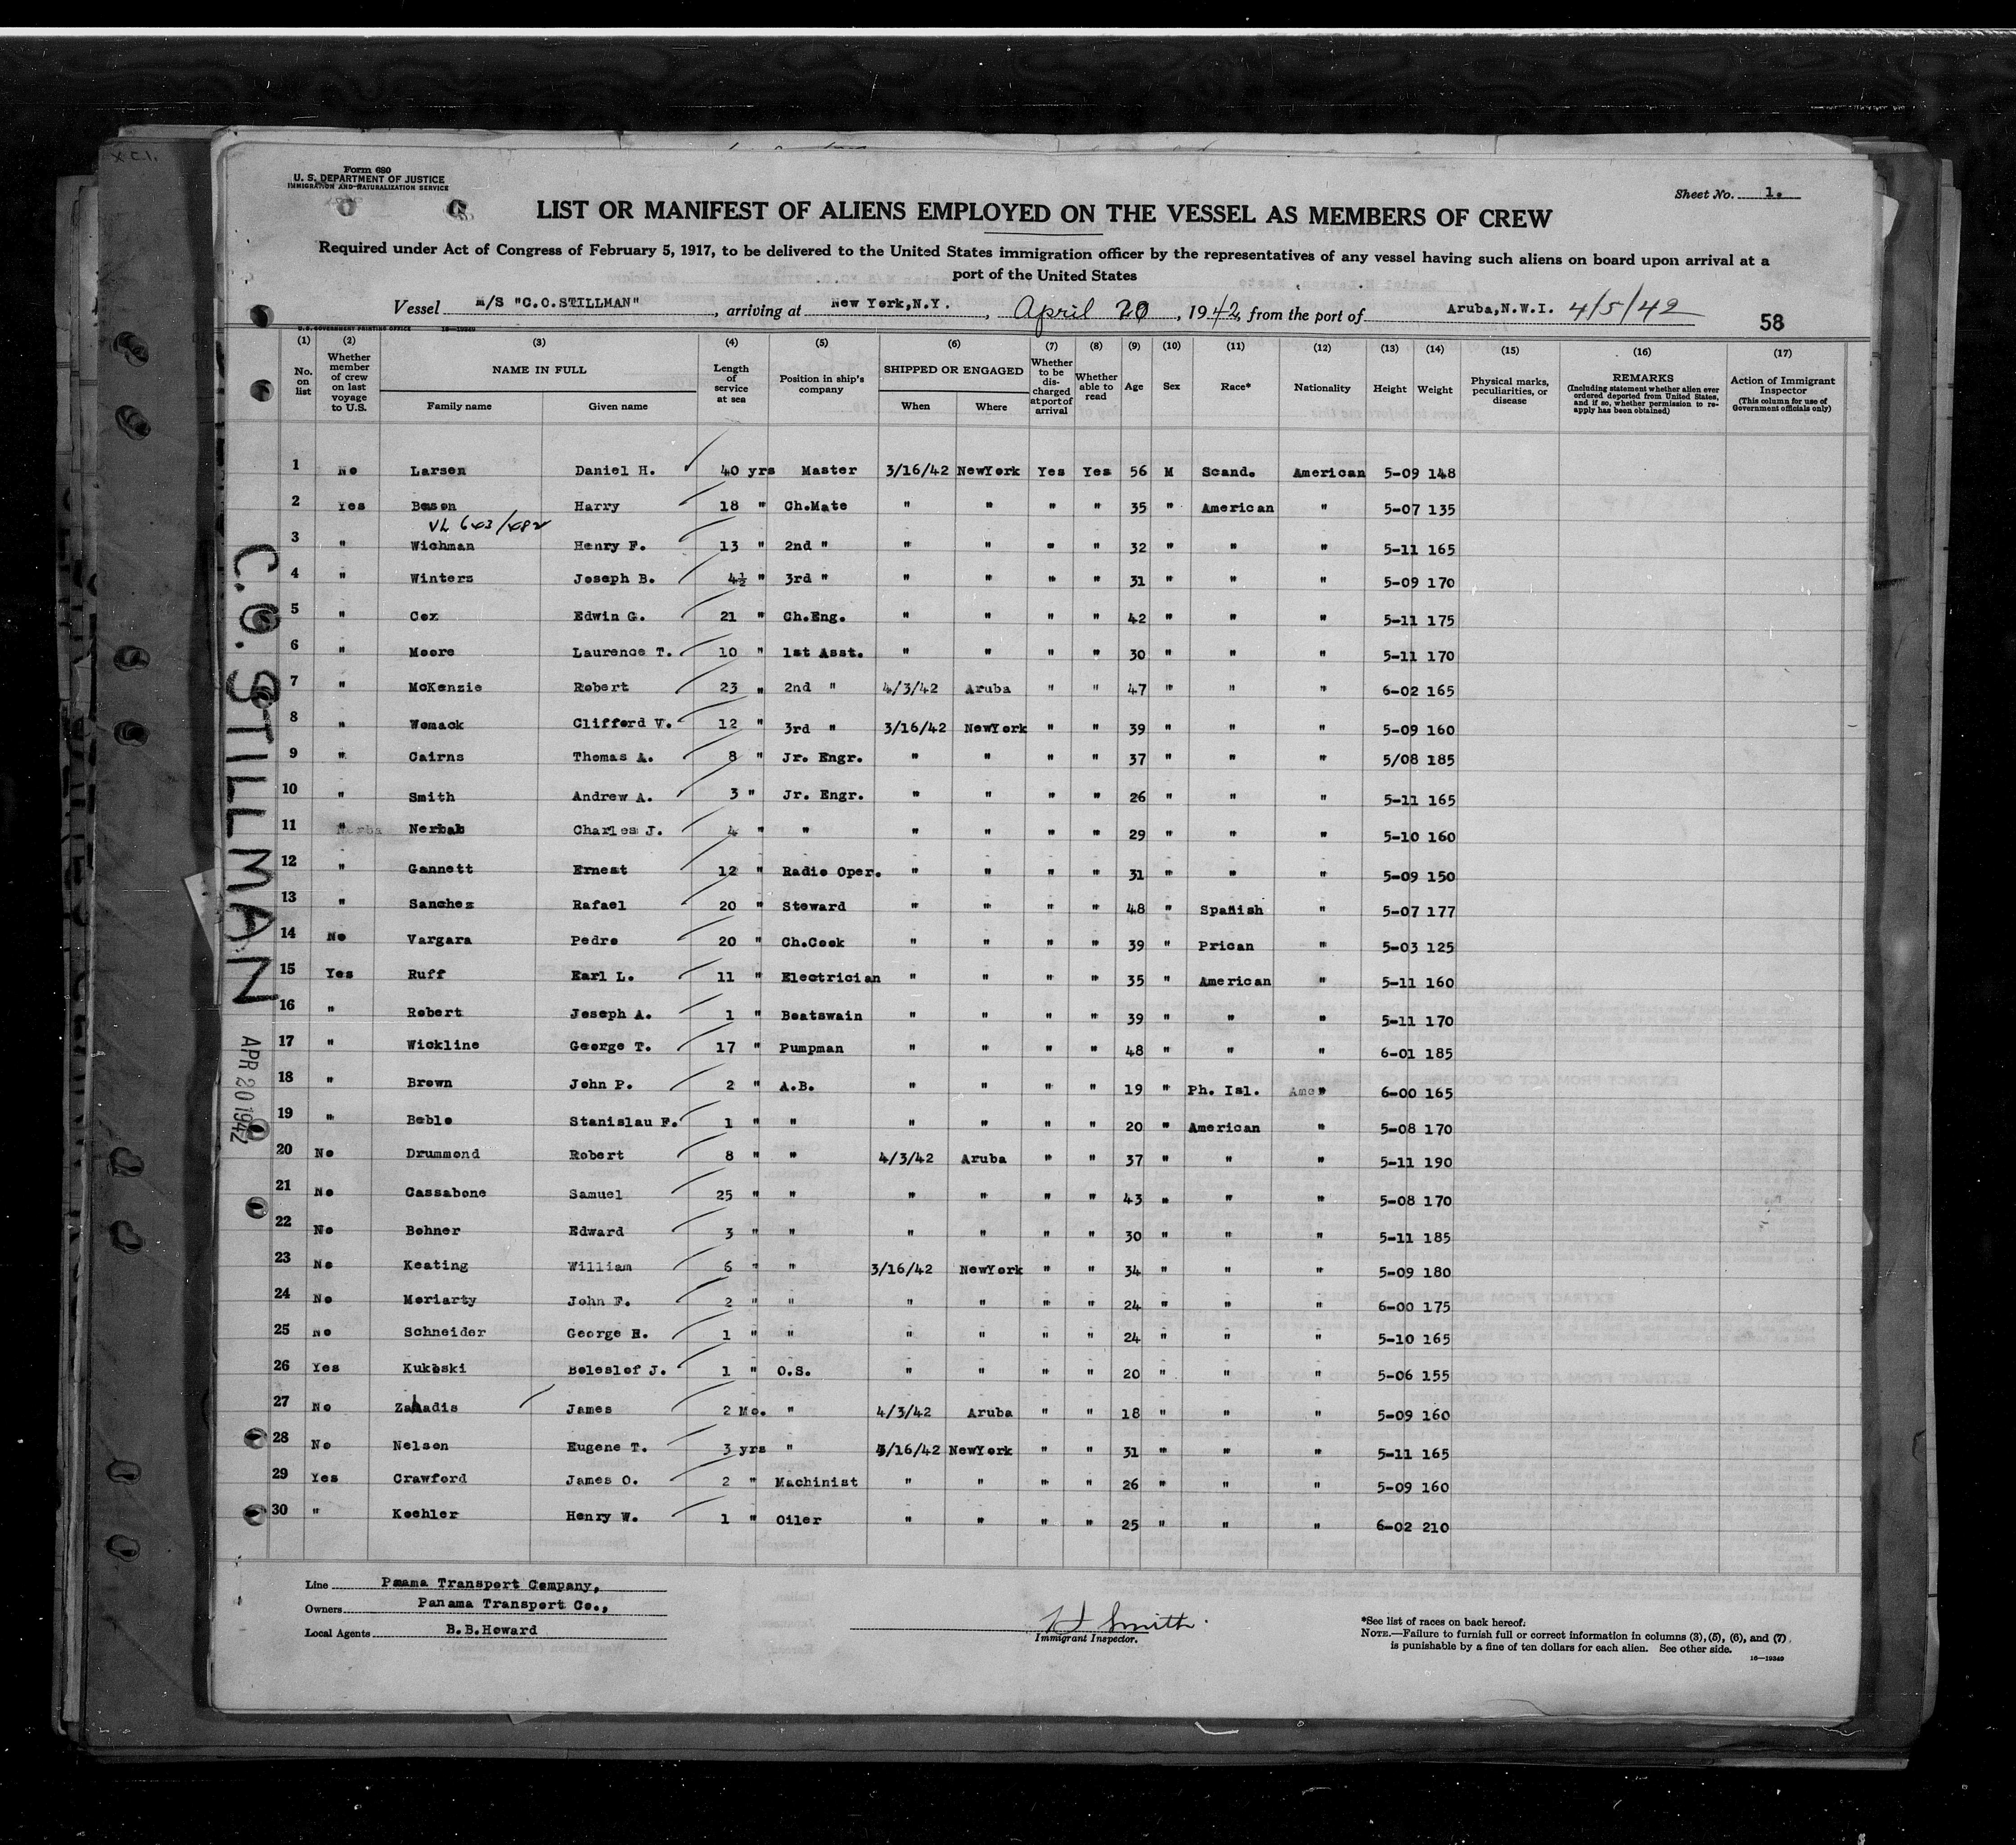 Form 680
U. S. DEPARTMENT OF JUSTICE
IMMIGRATION AND NATURALIZATION SERVICE
Sheet No. 1.
LIST OR MANIFEST OF ALIENS EMPLOYED ON THE VESSEL AS MEMBERS OF CREW
Required under Act of Congress of February 5, 1917, to be delivered to the United States immigration officer by the representatives of any vessel having such aliens on board upon arrival at a
port of the United States
Vessel M/S "C.O.STILLMAN", arriving at New York,N.Y., April 20, 1942, from the port of Aruba,N.W.I. 4/5/42
58
U. S. GOVERNMENT PRINTING OFFICE 16—19349
(1) (2) (3) (4) (5) (6) (7) (8) (9) (10) (11) (12) (13) (14) (15) (16) (17)
No. on list
Whether member of crew on last voyage to U.S.
NAME IN FULL
Family name Given name
Length of service at sea
Position in ship's company
SHIPPED OR ENGAGED
When Where
Whether to be discharged at port of arrival
Whether able to read
Age Sex Race* Nationality Height Weight
Physical marks, peculiarities, or disease
REMARKS
(Including statement whether alien ever ordered deported from United States, and if so, whether permission to reapply has been obtained)
Action of Immigrant Inspector
(This column for use of Government officials only)
1 No Larsen Daniel H. 40 yrs Master 3/16/42 NewYork Yes Yes 56 M Scand. American 5-09 148
2 Yes Bason Harry 18 " Ch.Mate " " " " 35 " American " 5-07 135
3 " Wichman Henry F. 13 " 2nd " " " " " 32 " " " 5-11 165
4 " Winters Joseph B. 4½ " 3rd " " " " " 31 " " " 5-09 170
5 " Cox Edwin G. 21 " Ch.Eng. " " " " 42 " " " 5-11 175
6 " Moore Laurence T. 10 " 1st Asst. " " " " 30 " " " 5-11 170
7 " McKenzie Robert 23 " 2nd " 4/3/42 Aruba " " 47 " " " 6-02 165
8 " Womack Clifford V. 12 " 3rd " 3/16/42 NewYork " " 39 " " " 5-09 160
9 " Cairns Thomas A. 8 " Jr. Engr. " " " " 37 " " " 5/08 185
10 " Smith Andrew A. 3 " Jr. Engr. " " " " 26 " " " 5-11 165
11 " Nerbab Charles J. 4 " " " " " " 29 " " " 5-10 160
12 " Gannett Ernest 12 " Radio Oper. " " " " 31 " " " 5-09 150
13 " Sanchez Rafael 20 " Steward " " " " 48 " Spanish " 5-07 177
14 No Vargara Pedro 20 " Ch.Cook " " " " 39 " Prican " 5-03 125
15 Yes Ruff Earl L. 11 " Electrician " " " " 35 " American " 5-11 160
16 " Robert Joseph A. 1 " Boatswain " " " " 39 " " " 5-11 170
17 " Wickline George T. 17 " Pumpman " " " " 48 " " " 6-01 185
18 " Brown John P. 2 " A.B. " " " " 19 " Ph. Isl. Amer 6-00 165
19 " Boble Stanislau F. 1 " " " " " " 20 " American " 5-08 170
20 No Drummond Robert 8 " " 4/3/42 Aruba " " 37 " " " 5-11 190
21 No Cassabone Samuel 25 " " " " " " 43 " " " 5-08 170
22 No Bohner Edward 3 " " " " " " 30 " " " 5-11 185
23 No Keating William 6 " " 3/16/42 NewYork " " 34 " " " 5-09 180
24 No Moriarty John F. 2 " " " " " " 24 " " " 6-00 175
25 No Schneider George H. 1 " " " " " " 24 " " " 5-10 165
26 Yes Kukoski Boleslof J. 1 " O.S. " " " " 20 " " " 5-06 155
27 No Zahadis James 2 Mo. " 4/3/42 Aruba " " 18 " " " 5-09 160
28 No Nelson Eugene T. 3 yrs " 3/16/42 NewYork " " 31 " " " 5-11 165
29 Yes Crawford James O. 2 " Machinist " " " " 26 " " " 5-09 160
30 " Koehler Henry W. 1 " Oiler " " " " 25 " " " 6-02 210
C.O. STILLMAN
APR 20 1942
Line Paama Transport Company,
Owners Panama Transport Co.,
Local Agents B.B.Howard
H Smith
Immigrant Inspector.
*See list of races on back hereof.
NOTE.—Failure to furnish full or correct information in columns (3), (5), (6), and (7) is punishable by a fine of ten dollars for each alien. See other side.
16—19349